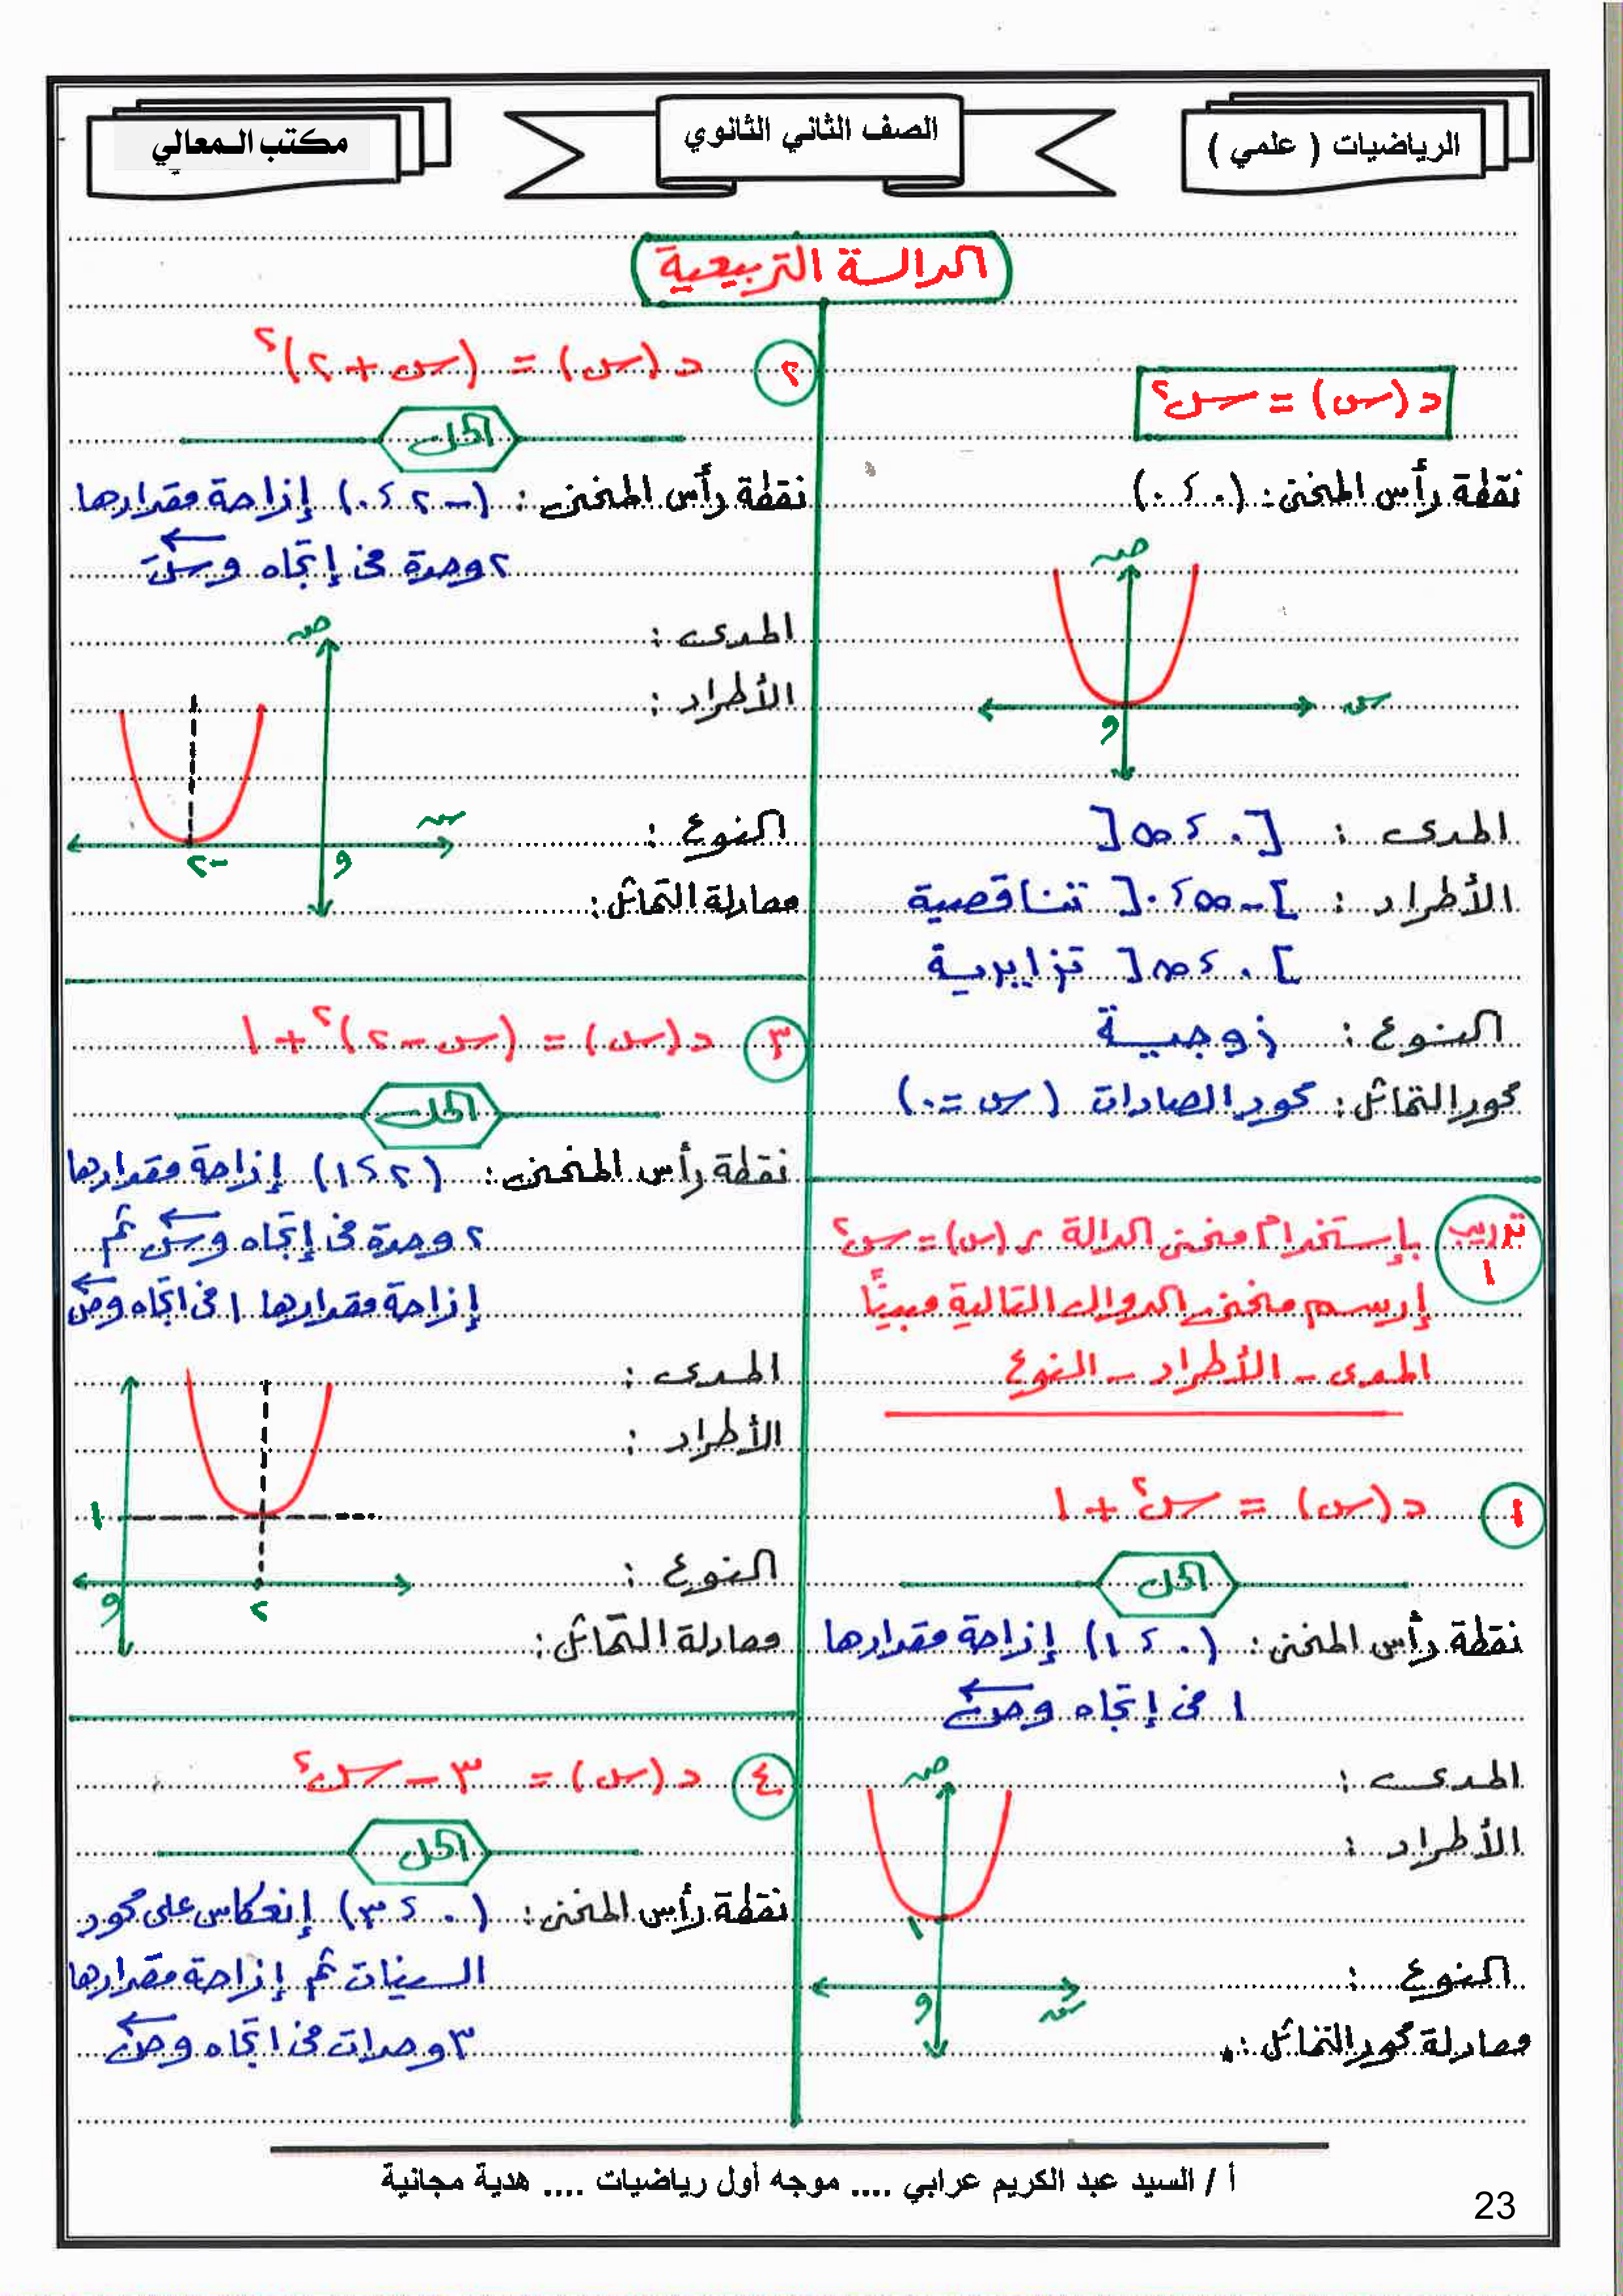 الرياضيات ( علمي )
الصف الثاني الثانوي
مكتب المعالي
الدالة التربيعية
د (س) = س٢
نقطة رأس المنحنى : (٠ ، ٠)
ص
س
و
المدى : [٠ ، ∞[
الأطراد : ]-∞ ، ٠[ تناقصية
]٠ ، ∞[ تزايدية
النوع : زوجية
محور التماثل : محور الصادات (س = ٠)
تدريب ١
بإستخدام منحنى الدالة د (س) = س٢
إرسم منحنى الدوال التالية مبينًا
المدى - الأطراد - النوع
١ د (س) = س٢ + ١
الحل
نقطة رأس المنحنى : (٠ ، ١) إزاحة مقدارها
١ فى إتجاه وص
المدى :
ص
الأطراد :
١
النوع :
و
س
معادلة محور التماثل :
٢ د (س) = (س + ٢)٢
الحل
نقطة رأس المنحنى : (-٢ ، ٠) إزاحة مقدارها
٢ وحدة فى إتجاه وسَ
المدى :
ص
الأطراد :
النوع :
س
-٢
و
معادلة التماثل :
٣ د (س) = (س - ٢)٢ + ١
الحل
نقطة رأس المنحنى : (٢ ، ١) إزاحة مقدارها
٢ وحدة فى إتجاه وس ثم
إزاحة مقدارها ١ فى اتجاه وص
المدى :
الأطراد :
١
النوع :
و
٢
معادلة التماثل :
٤ د (س) = ٣ - س٢
الحل
نقطة رأس المنحنى : (٠ ، ٣) إنعكاس على محور
السينات ثم إزاحة مقدارها
٣ وحدات فى اتجاه وص
أ / السيد عبد الكريم عرابي .... موجه أول رياضيات .... هدية مجانية
23